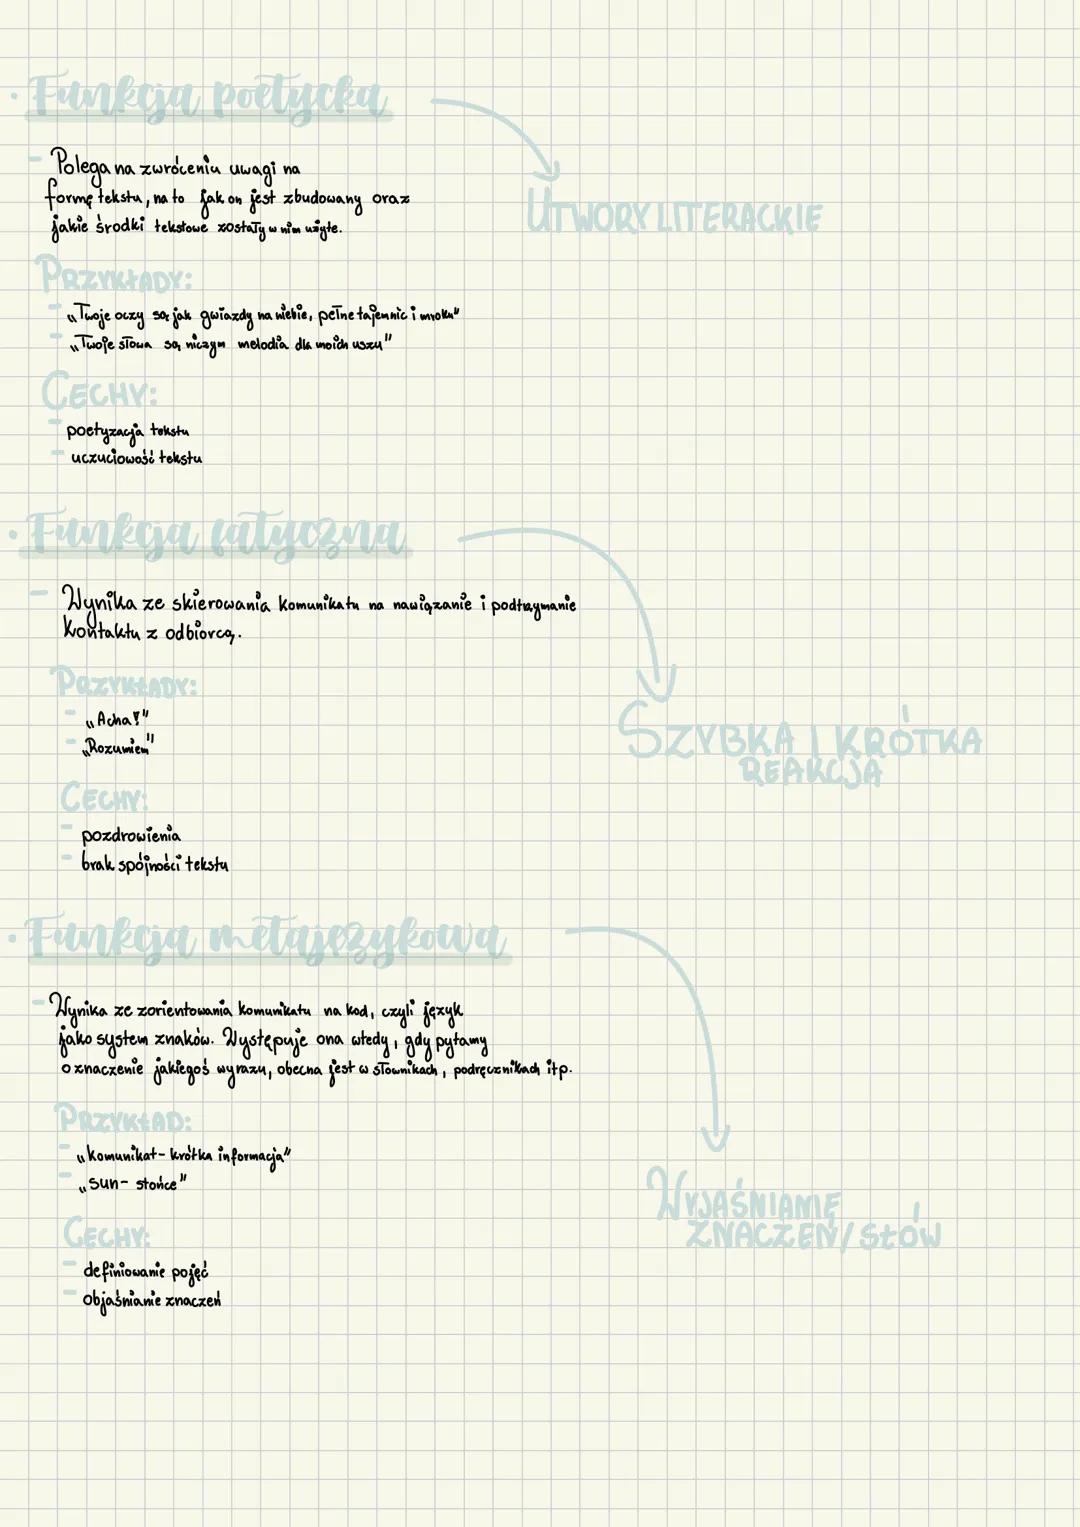 · Funkcja poetycka
- Polega na zwróceniu uwagi na
formę tekstu, na to jak on jest zbudowany oraz
jakie środki tekstowe zostały w nim użyte.
UTWORY LITERACKIE
PRZYKŁADY:
- „Twoje oczy są jak gwiazdy na niebie, pełne tajemnic i mroku"
- „Twoje słowa są niczym melodia dla moich uszu"
CECHY:
- poetyzacja tekstu
- uczuciowość tekstu
· Funkcja fatyczna
- Wynika ze skierowania komunikatu na nawiązanie i podtrzymanie
kontaktu z odbiorcą.
SZYBKA I KRÓTKA
REAKCJA
PRZYKŁADY:
- „Acha!"
- „Rozumiem"
CECHY:
- pozdrowienia
- brak spójności tekstu
· Funkcja metajęzykowa
- Wynika ze zorientowania komunikatu na kod, czyli język
jako system znaków. Występuje ona wtedy, gdy pytamy
o znaczenie jakiegoś wyrazu, obecna jest w słownikach, podręcznikach itp.
WYJAŚNIANIE
ZNACZEŃ/SŁÓW
PRZYKŁAD:
- „komunikat- krótka informacja"
- „sun- słońce"
CECHY:
- definiowanie pojęć
- objaśnianie znaczeń